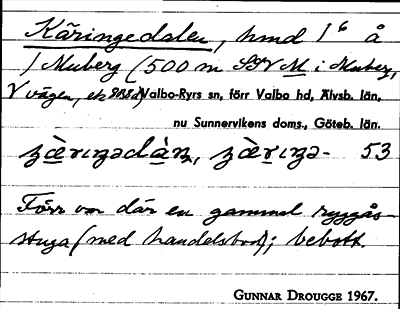 Käringedalen, hmd 1⁶ å
1 Muberg (500 m SSV M i Muberg,
V vägen, ek Valbo-Ryrs sn, förr Valbo hd, Älvsb. län,
nu Sunnervikens doms., Göteb. län.
53
Förr var där en gammal ryggås-
stuga (med handelsbod); bebott.
GUNNAR DROUGGE 1967.